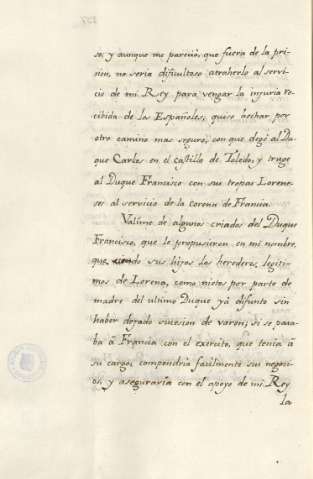 so, y aunque me pareciò, que fuera de la pri-
sion, no seria dificultoso atraherlo al servi-
cio de mi Rey para vengar la injuria re-
cibida de los Españoles; quise hechar por
otro camino mas seguro, con que dejé al Du-
que Carlos en el castillo de Toledo, y truge
al Duque Francisco con sus tropas Lorene-
ses al servicio de la corona de Francia.
Valime de algunos criados del Duque
Francisco, que le propusieron en mi nombre,
que siendo sus hijos los herederos legiti-
mos de Lorena, como nietos por parte de
madre del ultimo Duque yà difunto sin
haber dexado sucesion de varon; si se pasa-
ba à Francia con el exército, que tenia à
su cargo, compondria facilmente sus negoci-
os, y aseguraria con el apoyo de mi Rey
la